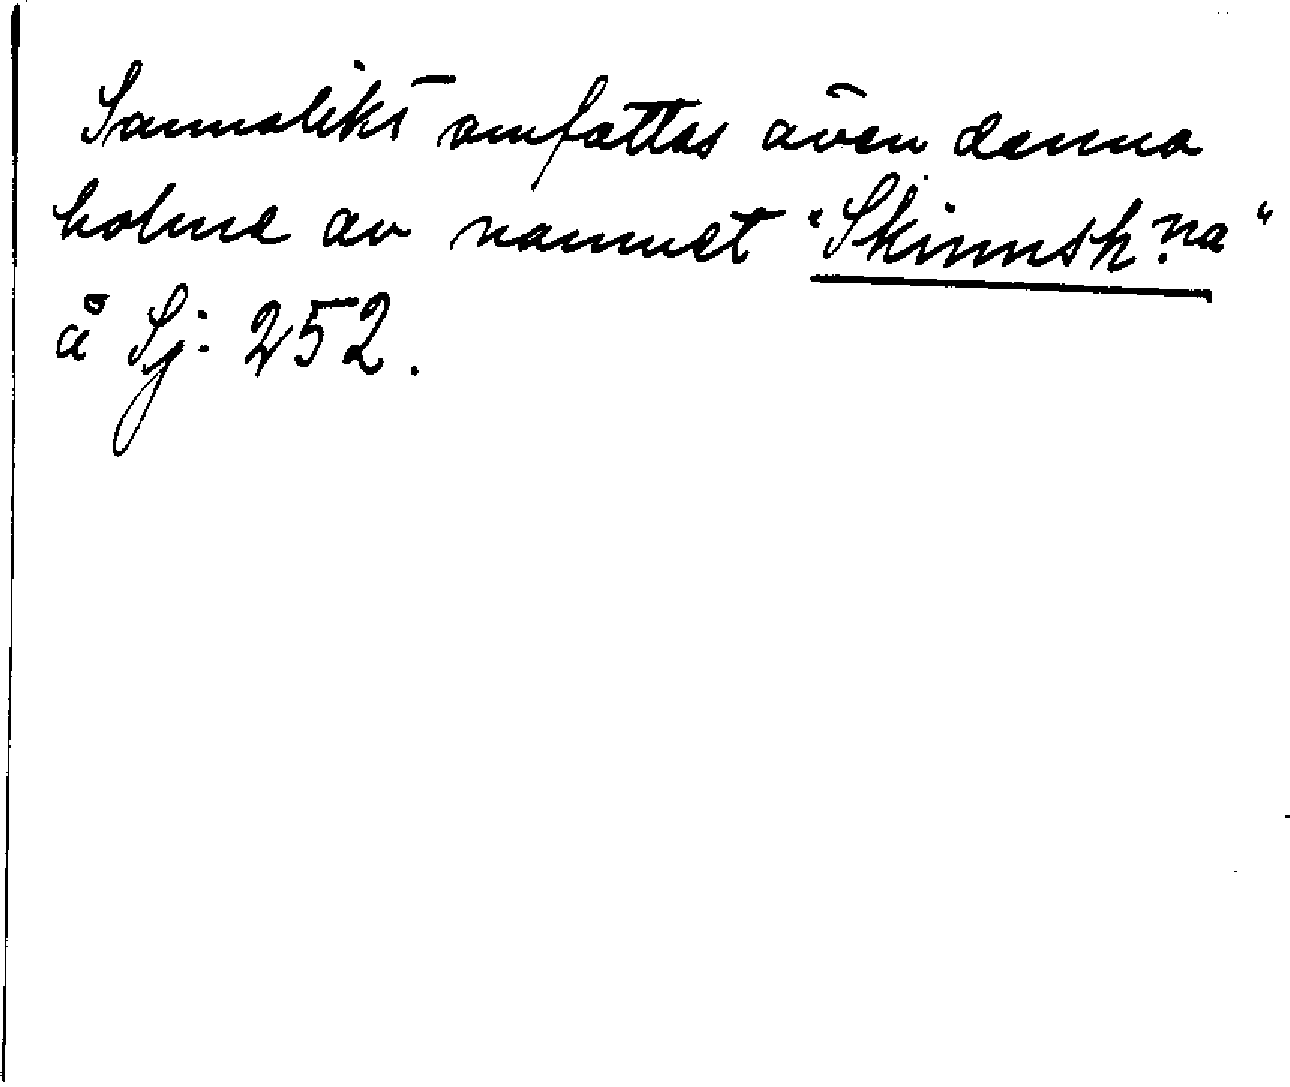 Sannolikt omfattas även denna
holme av namnet "Skinnsk:na"
å Sj: 252.